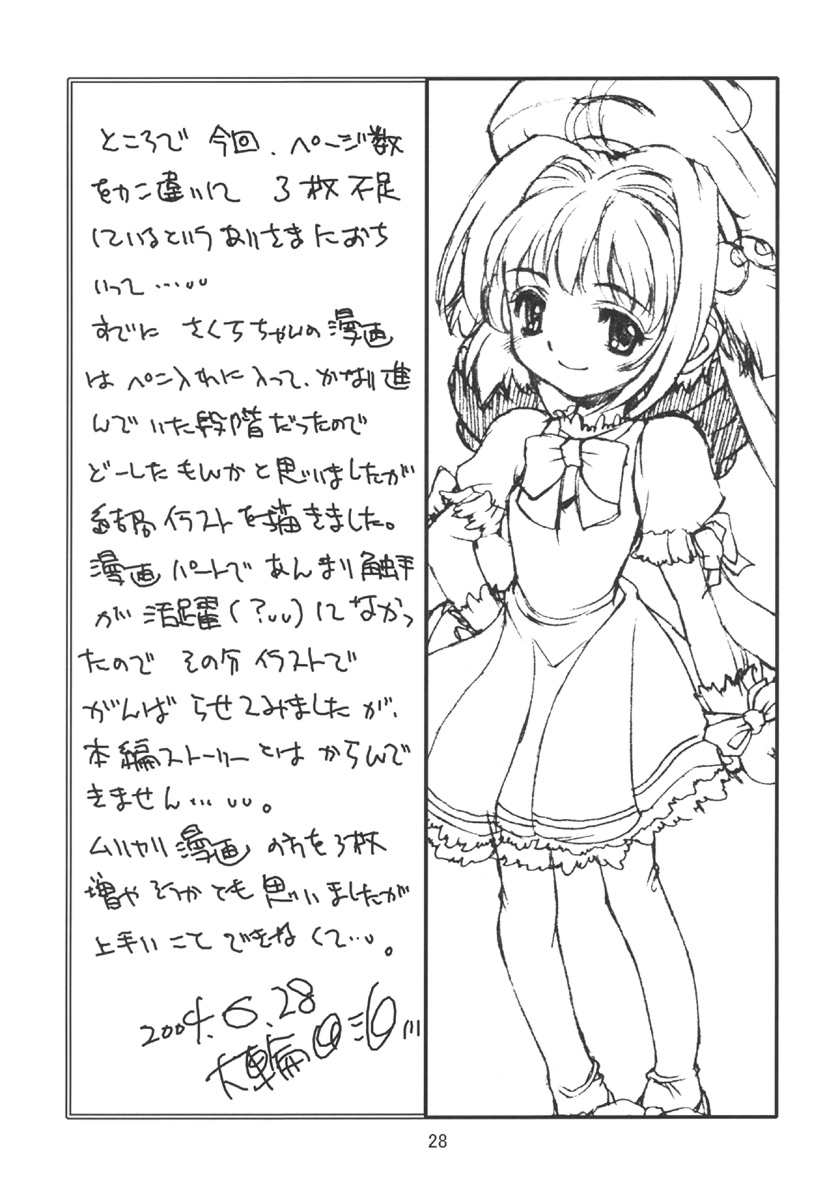 ところで 今回、ページ数
をかん違いして 3枚不足
しているというありさまにおち
いって・・・
すでに さくらちゃんの漫画
は ペン入れに入って、かなり進
んでいた段階だったので
どーしたもんかと思いましたが
結局イラストを描きました。
漫画パートであんまり触手
が活躍(?)しなかっ
たので その分イラストで
がんばらせてみましたが、
本編ストーリーとはからんで
きません・・・。
ムリヤリ漫画の方を3枚
増やそうかとも思いましたが
上手いことできなくて・・・。
2004.6.28
大輪
28